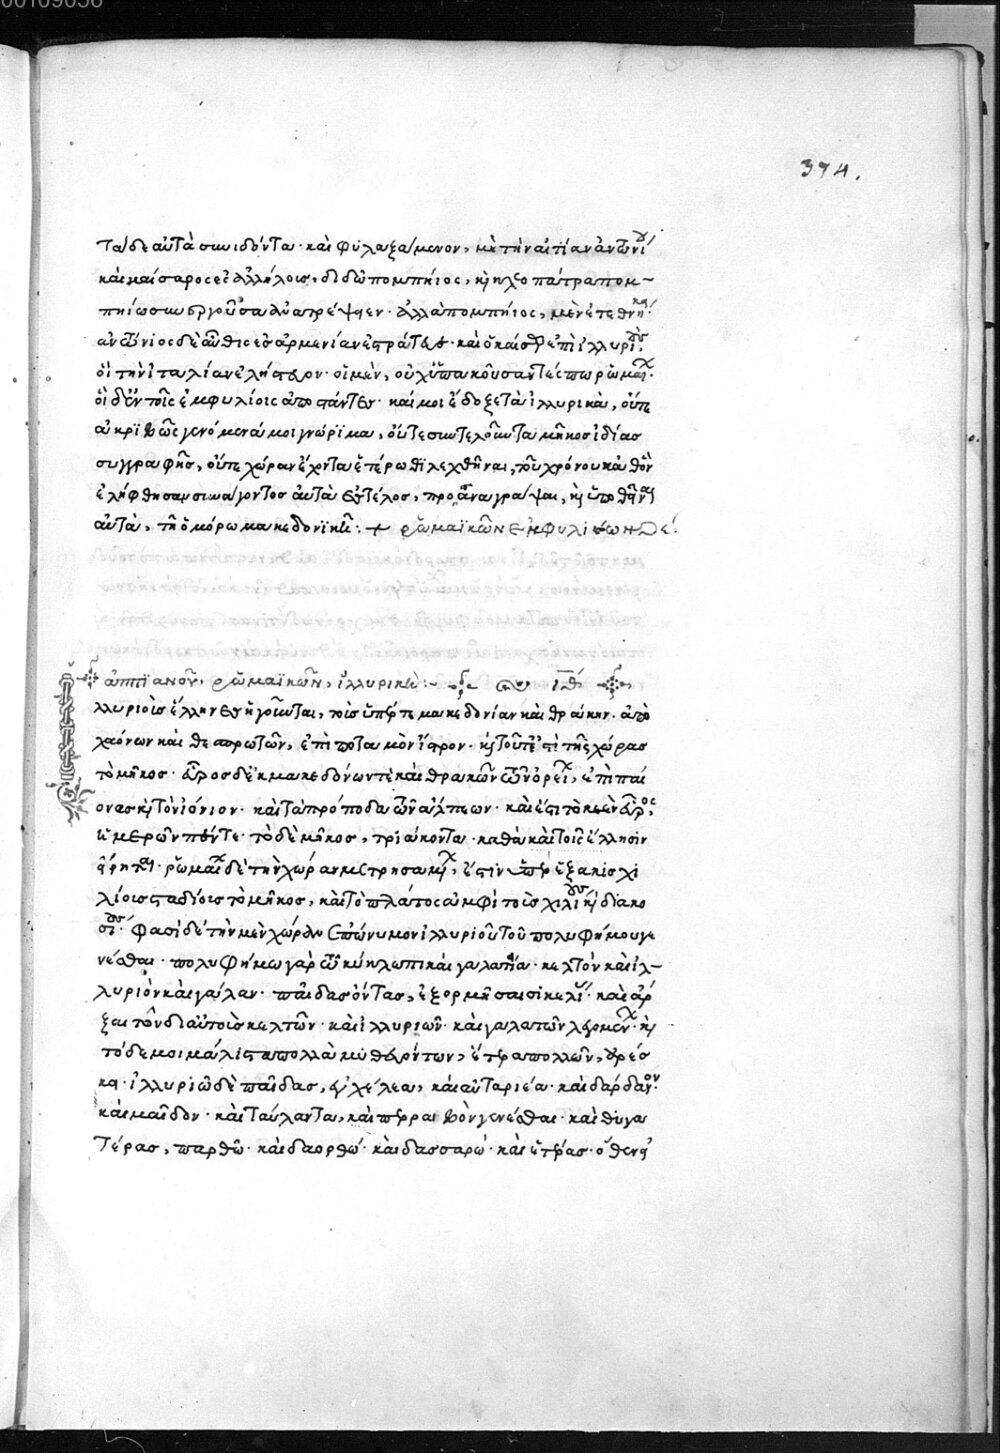 00109056
374.
τάδε αὐτὰ συνιδόντα· καὶ φυλαξάμενον, μὴ τὴν αἰτίαν ἀντώνι
καὶ καίσαρος ἐς ἀλλήλοις, διδῶ πομπήιος, ἢ κλεοπάτρα πομ-
πηίω συνεργοῦσα ἀνατρέψειεν· ἀλλὰ πομπήιος, μὲν ἐτεθνήκει·
ἀντώνιος δὲ αὖθις ἐς ἀρμενίαν ἐστράτευε· καὶ ὁ καῖσαρ ἐπὶ ἰλλυριοὺς
οἳ τὴν ἰταλίαν ἐλήστευον· οἱ μὲν, οὐχ ὑπακούσαντές πω ῥωμαίων·
οἳ δ' ἐν τοῖς ἐμφυλίοις ἀποστάντες· καί μοι ἔδοξε τὰ ἰλλυρικὰ, οὔτε
ἀκριβῶς γενόμενά μοι γνώριμα, οὔτε συντελοῦντα μῆκος ἰδίας
συγγραφῆς, οὔτε χώραν ἔχοντα ἑτέρωθι λεχθῆναι, τοῦ χρόνου καθ' ὃν
ἐλήφθησαν συνάγοντος αὐτὰ ἐς τέλος, προαναγράψαι, καὶ ὑποθεῖναι
αὐτὰ, τῇ ὁμόρω μακεδονικῇ:+ ῥωμαϊκῶν ἐμφυλίων ε
ἀππιανοῦ, ῥωμαϊκῶν, ἰλλυρική:-
λλυριοὺς ἕλληνες ἡγοῦνται, τοὺς ὑπέρ τε μακεδονίαν καὶ θράκην· ἀπὸ
χαόνων καὶ θεσπρωτῶν, ἐπὶ ποταμὸν ἴστρον· καὶ τοῦτ' ἐστὶ τῆς χώρας
τὸ μῆκος· εὖρος δ' ἐκ μακεδόνων τε καὶ θρακῶν τῶν ὀρείων, ἐπὶ παί
ονας καὶ τὸν ἰόνιον· καὶ τὰ πρόποδα τῶν ἄλπεων· καὶ ἔστι τὸ μὲν εὖρος,
ἡμερῶν πέντε· τὸ δὲ μῆκος, τριάκοντα· καθὰ καὶ τοῖς ἕλλησιν
εἴρηται· ῥωμαίων δὲ τὴν χώραν μετρησαμένων, ἔστιν ὑπὲρ ἑξακισχι
λίους σταδίους τὸ μῆκος, καὶ τὸ πλάτος ἀμφὶ τοὺς χιλίους καὶ διακο
σίους· φασὶ δὲ τὴν μὲν χώραν ἐπώνυμον ἰλλυριοῦ τοῦ πολυφήμου γε
νέσθαι· πολυφήμω γὰρ τῶ κύκλωπι καὶ γαλατεία· κελτὸν καὶ ἰλ-
λυριὸν καὶ γάλαν· παῖδας ὄντας, ἐξορμῆσαι σικελίας· καὶ ἄρ
ξαι τῶν δι' αὐτοὺς κελτῶν· καὶ ἰλλυριῶν· καὶ γαλατῶν λεγομένων· καὶ
τόδε μοι μάλιστα πολλὰ μυθευόντων, ἑτέρα πολλῶν, ἀρέσ
κει· ἰλλυριῶ δὲ παῖδας, ἐγχέλεα, καὶ αὐταριέα· καὶ δάρδανον·
καὶ μαῖδον· καὶ ταύλαντα, καὶ περραιβὸν γενέσθαι· καὶ θυγα
τέρας, παρθὼ· καὶ δαορθώ· καὶ δασσαρώ· καὶ ἑτέρας· ὅθεν εἰσὶ